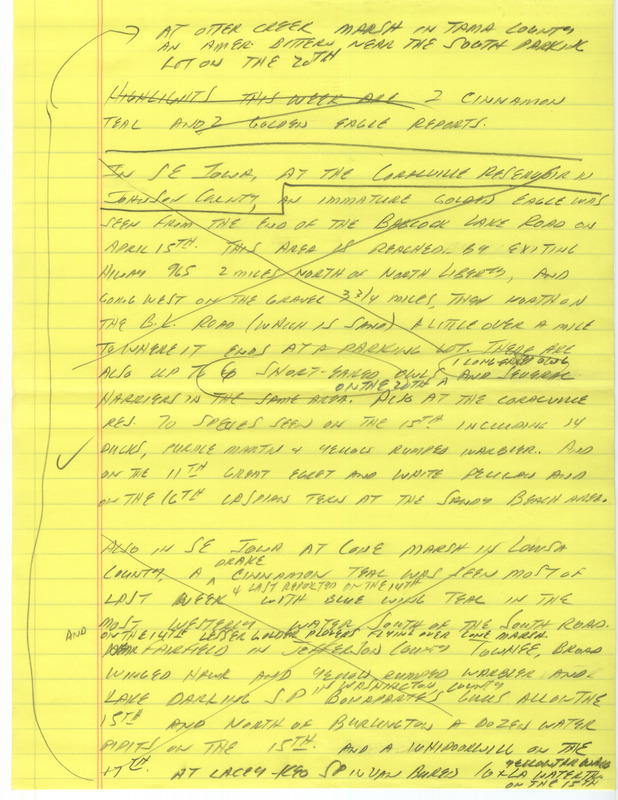 AT OTTER CREEK MARSH IN TAMA COUNTY
AN AMER. BITTERN NEAR THE SOUTH PARKING
LOT ON THE 20TH
HIGHLIGHTS THIS WEEK ARE 2 CINNAMON
TEAL AND 2 GOLDEN EAGLE REPORTS.
IN SE IOWA, AT THE CORALVILLE RESERVOIR IN
JOHNSON COUNTY, AN IMMATURE GOLDEN EAGLE WAS
SEEN FROM THE END OF THE BABCOCK LAKE ROAD ON
APRIL 15TH. THIS AREA IS REACHED BY EXITING
HIWAY 965 2 MILES NORTH OF NORTH LIBERTY, AND
GOING WEST ON THE GRAVEL 3 3/4 MILES, THEN NORTH ON
THE B.L. ROAD (WHICH IS SAND) A LITTLE OVER A MILE
TO WHERE IT ENDS AT A PARKING LOT. THERE ARE
1 LONG EARED OWL
ALSO UP TO 6 SHORT-EARED OWLS AND SEVERAL
ON THE 20TH A
HARRIERS IN THE SAME AREA. ALSO AT THE CORALVILLE
RES. 70 SPECIES SEEN ON THE 15TH INCLUDING 14
DUCKS, PURPLE MARTIN & YELLOW RUMPED WARBLER. AND
ON THE 11TH GREAT EGRET AND WHITE PELICAN AND
ON THE 16TH CASPIAN TERN AT THE SANDY BEACH AREA.
ALSO IN SE IOWA AT CONE MARSH IN LOUISA
DRAKE
COUNTY, A CINNAMON TEAL WAS SEEN MOST OF
& LAST REPORTED ON THE 14TH
LAST WEEK WITH BLUE WING TEAL IN THE
MOST WESTERLY WATER SOUTH OF THE SOUTH ROAD.
AND ON THE 14TH LESSER GOLDEN PLOVERS FLYING OVER CONE MARSH.
NEAR FAIRFIELD IN JEFFERSON COUNTY TOWHEE, BROAD
WINGED HAWK AND YELLOW RUMPED WARBLER AND
IN WASHINGTON COUNTY
LAKE DARLING SP BONAPARTE'S GULLS ALL ON THE
15TH AND NORTH OF BURLINGTON A DOZEN WATER
PIPITS ON THE 15TH. AND A WHIPPOORWILL ON THE
17TH. AT LACEY-KEO SP IN VAN BUREN LA WATERTH
ON THE 15TH